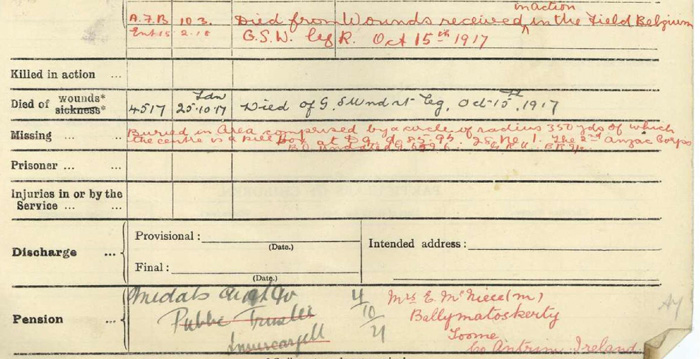 in action
A.F.B 103. Died from Wounds received in the Field Belgium
2.18 G.S.W. leg R. Oct 15th 1917
Killed in action ...
Died of wounds* sickness* ... 4517 25.10.17 Died of G.S. Wnd rt leg, Oct 15th, 1917
Missing ... ... Buried in Area comprised by a circle of radius 350 yds of which
the centre is a pill box at D. 2nd Anzac Corps
Prisoner ...
Injuries in or by the
Service ... ...
Discharge ...
Provisional :
(Date.)
Intended address :
Final :
(Date.)
Pension ...
Medals
Public Trustee
Invercargill
4/10/21
Mrs E. McNiece (m)
Ballymatoskerty
Toome
Co Antrim Ireland